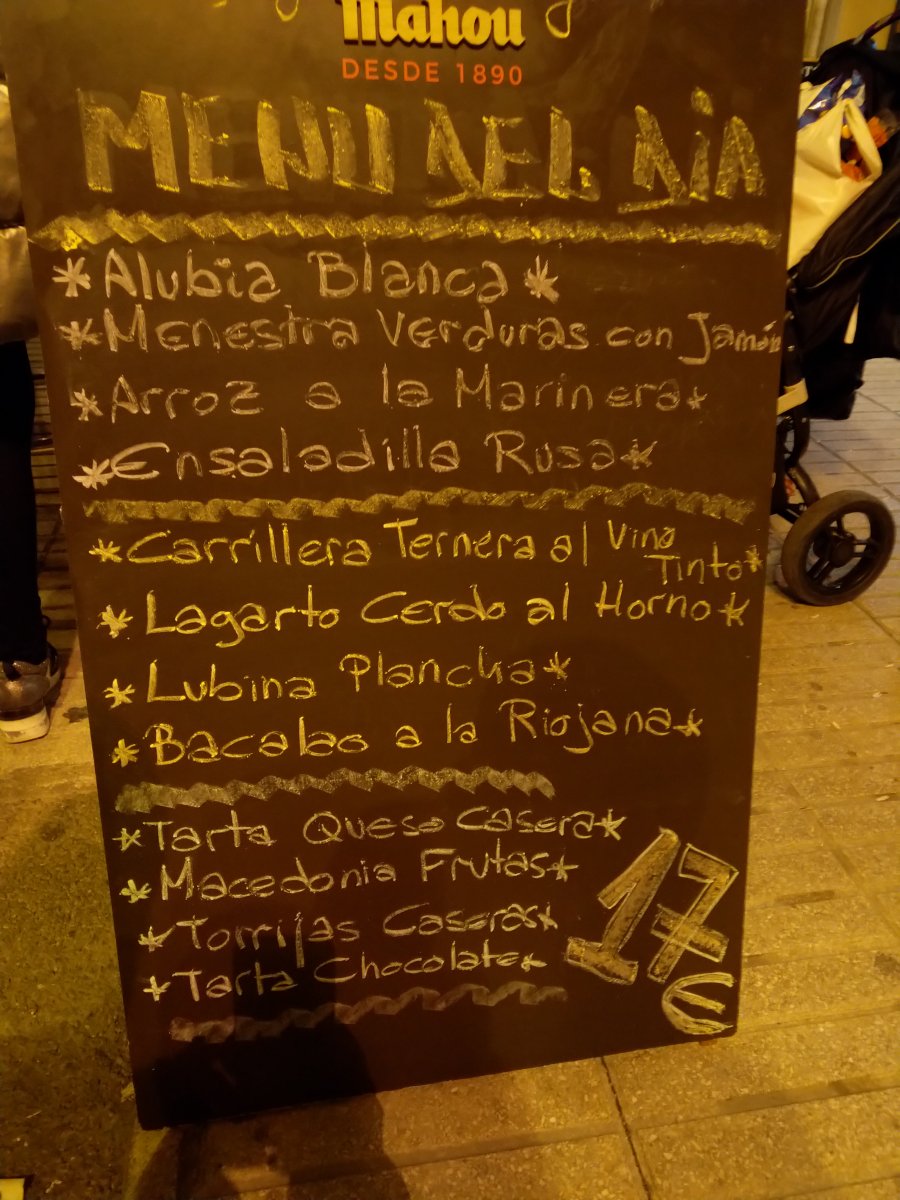 Mahou
DESDE 1890
MENU DEL DíA
*Alubia Blanca*
*Menestra Verduras con Jamón
*Arroz a la Marinera*
*Ensaladilla Rusa*
*Carrillera Ternera al Vino
Tinto*
*Lagarto Cerdo al Horno*
*Lubina Plancha*
*Bacalao a la Riojana*
*Tarta Queso Casera*
*Macedonia Frutas*
*Torrijas Caseras*
*Tarta Chocolate*
17
€